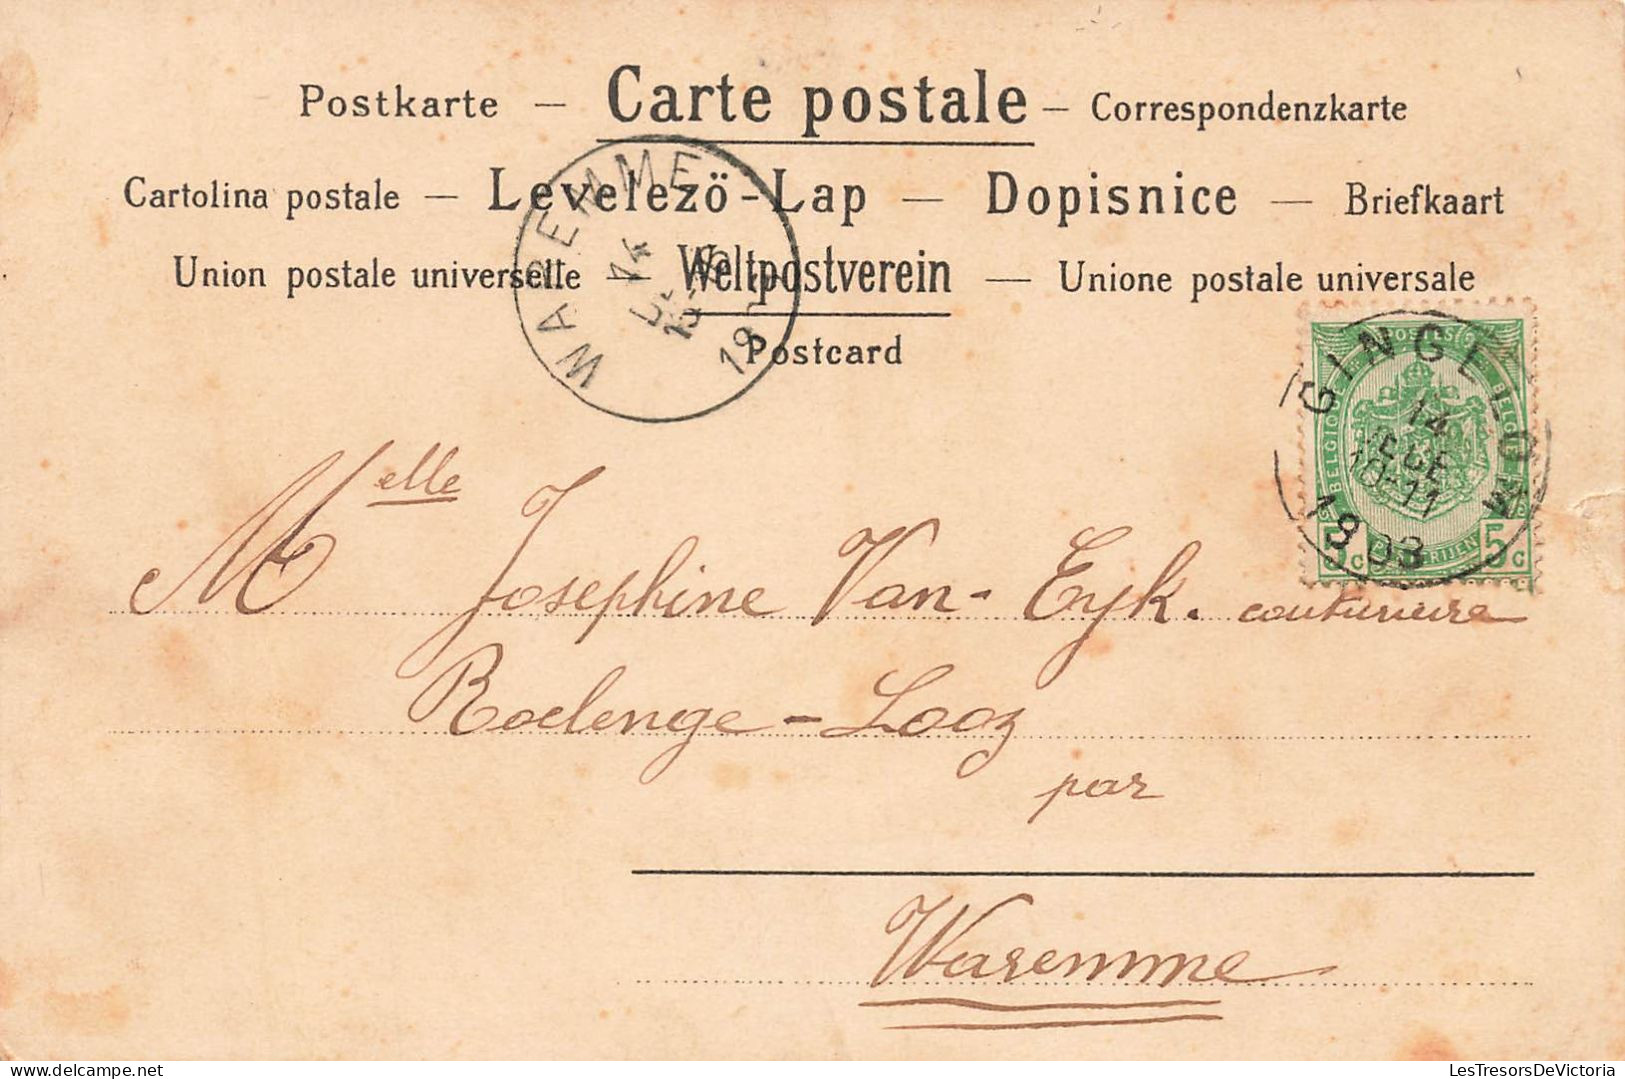 Postkarte — Carte postale — Correspondenzkarte
Cartolina postale — Levelezö-Lap — Dopisnice — Briefkaart
Union postale universelle — Weltpostverein — Unione postale universale
Postcard
WAREMME
14
GINGELOM
14
DECE
10-11
1903
POSTES
BELGIQUE
POSTERIJEN
5 C
Melle Josephine Van-Eyk. couturière
Roelenge-Looz
par
Waremme
LesTresorsDeVictoria